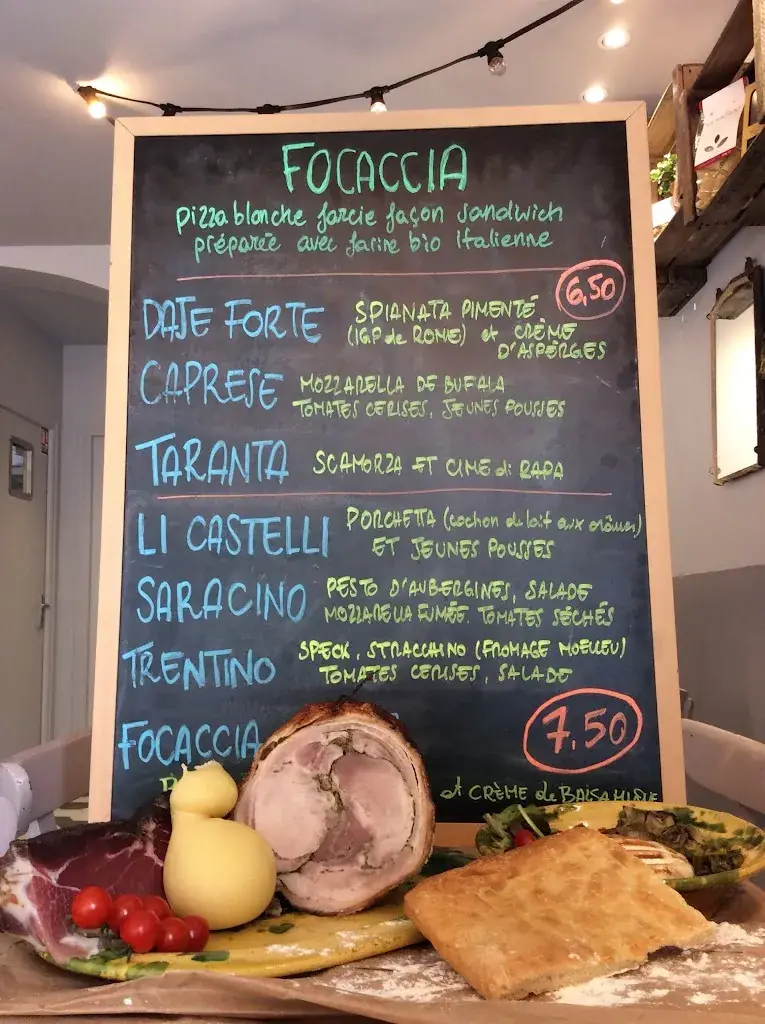 FOCACCIA
pizza blanche farcie façon sandwich
préparée avec farine bio Italienne
6,50
DAJE FORTE SPIANATA PIMENTÉ
(IGP de ROME) et CRÈME
D'ASPERGES
CAPRESE MOZZARELLA DE BUFALA
TOMATES CERISES, JEUNES POUSSES
TARANTA SCAMORZA ET CIME di RAPA
LI CASTELLI PORCHETTA (cochon de lait aux arômes)
ET JEUNES POUSSES
SARACINO PESTO D'AUBERGINES, SALADE
MOZZARELLA FUMÉE, TOMATES SÉCHÉS
TRENTINO SPECK, STRACCHINO (FROMAGE MOELLEU)
TOMATES CERISES, SALADE
FOCACCIA
7,50
et CRÈME de BALSAMIQUE